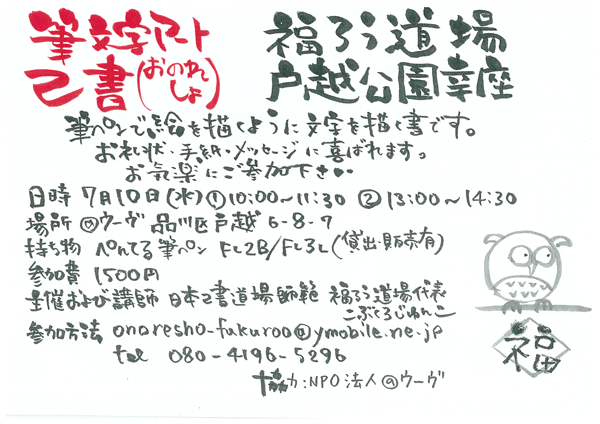 筆文字アート 福ろう道場
己書(おのれしょ) 戸越公園幸座
筆ペンで、絵を描くように文字を描く書です。
お礼状・手紙・メッセージに喜ばれます。
お気楽にご参加下さい
日時 7月10日(水)①10:00〜11:30 ②13:00〜14:30
場所 @ウーヴ 品川区戸越6-8-7
持ち物 ぺんてる筆ペン FL2B/FL3L(貸出・販売有)
参加費 1500円
主催および講師 日本己書道場師範 福ろう道場代表
こぶくろじゅんこ
参加方法 onoresho-fukuroo@ymobile.ne.jp
tel 080-4196-5296
協力:NPO法人@ウーヴ
福